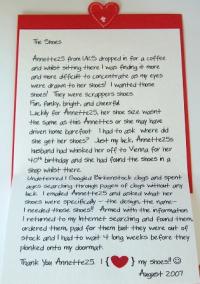 The Shoes
Annette25 from UKS dropped in for a coffee
and whilst sitting there I was finding it more
and more difficult to concentrate as my eyes
were drawn to her shoes! I wanted those
shoes! They were scrappers shoes
Fun, funky, bright, and cheerful
Luckily for Annette25, her shoe size wasnt
the same as this Annettes or she may have
driven home barefoot. I had to ask where did
she get her shoes? Just my luck, Annette25s
husband had whisked her off to Vienna for her
40th birthday and she had found the shoes in a
shop whilst there.
Undeterred I Googled Birkenstock clogs and spent
ages searching through pages of clogs without any
luck. I emailed Annette25 and asked what her
shoes were specifically - the design, the name-
I needed those shoes!! Armed with the information
I returned to my Internet searching and found them
ordered them, paid for them but they were out of
stock and I had to wait 4 long weeks before they
plonked onto my doormat.
Thank You Annette25. I {♥} my shoes!! ☺
August 2007